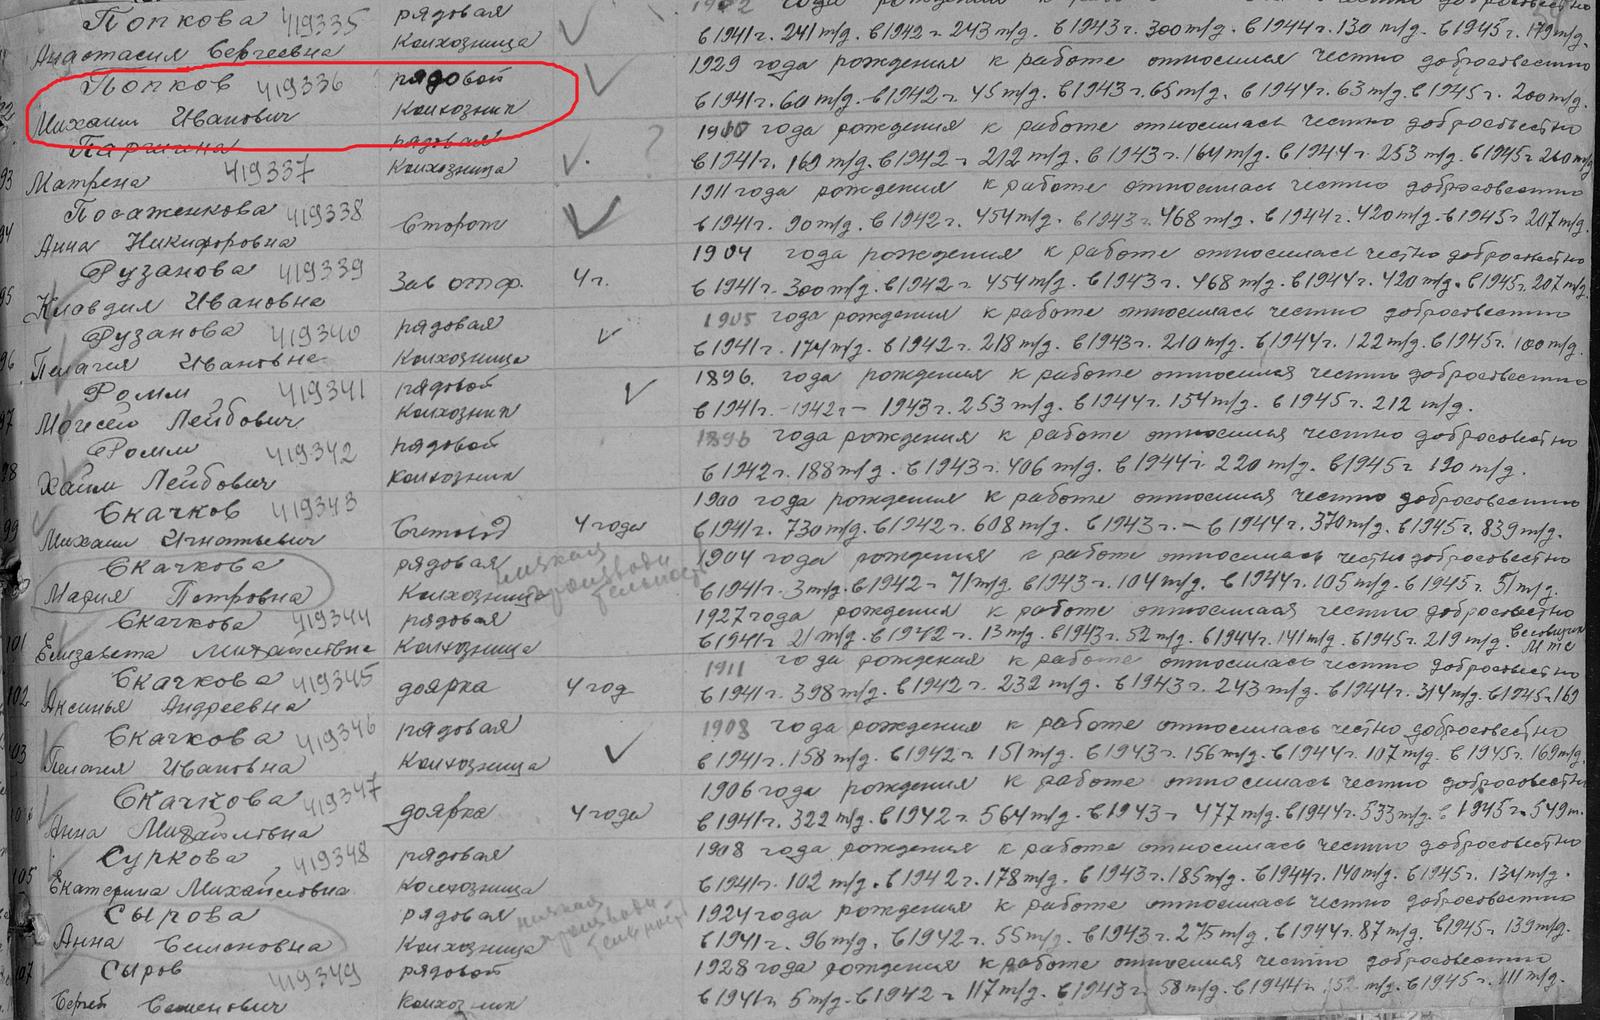 Попкова 419335 рядовая
Анастасия Сергеевна колхозница в 1941 г. 241 т/д. в 1942 г. 243 т/д. в 1943 г. 300 т/д. в 1944 г. 130 т/д. в 1945 г. 179 т/д.
Попков 419336 рядовой 1929 года рождения к работе относился честно добросовестно
Михаил Иванович колхозник в 1941 г. 60 т/д. в 1942 г. 45 т/д. в 1943 г. 65 т/д. в 1944 г. 63 т/д. в 1945 г. 200 т/д.
рядовая года рождения к работе относилась честно добросовестно
93 Матрена 419337 колхозница в 1941 г. 169 т/д. в 1942 г. 212 т/д. в 1943 г. 164 т/д. в 1944 г. 253 т/д. в 1945 г. 260 т/д
Посаженкова 419338 1911 года рождения к работе относилась честно добросовестно
94 Анна Никифоровна Сторож в 1941 г. 90 т/д. в 1942 г. 454 т/д. в 1943 г. 468 т/д. в 1944 г. 420 т/д. в 1945 г. 207 т/д.
Рузанова 419339 1904 года рождения к работе относилась честно добросовестно
95 Клавдия Ивановна Зав отф. 4 г. в 1941 г. 300 т/д. в 1942 г. 454 т/д. в 1943 г. 468 т/д. в 1944 г. 420 т/д. в 1945 г. 207 т/д.
Рузанова 419340 рядовая 1905 года рождения к работе относилась честно добросовестно
96 Пелагея Ивановна колхозница в 1941 г. 174 т/д. в 1942 г. 218 т/д. в 1943 г. 210 т/д. в 1944 г. 122 т/д. в 1945 г. 100 т/д.
Ромм 419341 рядовой 1896. года рождения к работе относился честно добросовестно
97 Моисей Лейбович колхозник в 1941 г. - 1942 г. - 1943 г. 253 т/д. в 1944 г. 154 т/д. в 1945 г. 212 т/д.
Ромм 419342 рядовой 1896 года рождения к работе относился честно добросовестно
98 Хаим Лейбович колхозник в 1942 г. 188 т/д. в 1943 г. 406 т/д. в 1944 г. 220 т/д. в 1945 г 190 т/д.
Скачков 419343 1900 года рождения к работе относился честно добросовестно
99 Михаил Игнатьевич Счетовод 4 года в 1941 г. 730 т/д. в 1942 г. 608 т/д. в 1943 г. - в 1944 г. 370 т/д. в 1945 г. 839 т/д.
Скачкова рядовая низкая 1904 года рождения к работе относилась честно добросовестно
Мария Петровна колхозница производительность в 1941 г. 3 т/д. в 1942 г 71 т/д. в 1943 г. 104 т/д. в 1944 г. 105 т/д. в 1945 г. 51 т/д.
Скачкова 419344 рядовая 1927 года рождения к работе относилась честно добросовестно
101 Елизавета Михайловна колхозница в 1941 г 21 т/д. в 1942 г. 13 т/д. в 1943 г. 52 т/д. в 1944 г. 141 т/д. в 1945 г. 219 т/д. МТС
Скачкова 419345 1911 года рождения к работе относилась честно добросовестно
102 Аксинья Андреевна доярка 4 год в 1941 г. 398 т/д. в 1942 г. 232 т/д. в 1943 г. 243 т/д. в 1944 г. 314 т/д. в 1945 г. 169
Скачкова 419346 рядовая 1908 года рождения к работе относилась честно добросовестно
103 Пелагея Ивановна колхозница в 1941 г. 158 т/д. в 1942 г. 151 т/д. в 1943 г. 156 т/д. в 1944 г. 107 т/д. в 1945 г. 169 т/д.
Скачкова 419347 1906 года рождения к работе относилась честно добросовестно
Анна Михайловна доярка 4 года в 1941 г. 322 т/д. в 1942 г. 564 т/д. в 1943 г 477 т/д. в 1944 г. 533 т/д. в 1945 г. 549 т.
Суркова 419348 рядовая 1908 года рождения к работе относилась честно добросовестно
105 Екатерина Михайловна колхозница в 1941 г. 102 т/д. в 1942 г. 178 т/д. в 1943 г. 185 т/д. в 1944 г. 140 т/д. в 1945 г. 134 т/д.
Сырова рядовая низкая 1924 года рождения к работе относилась честно добросовестно
Анна Семеновна колхозница производительность в 1941 г. 96 т/д. в 1942 г. 55 т/д. в 1943 г. 275 т/д. в 1944 г. 87 т/д. в 1945 г. 139 т/д.
107 Сыров 419349 рядовой 1928 года рождения к работе относился честно добросовестно
Сергей Семенович колхозник в 1941 г. 5 т/д. в 1942 г 117 т/д. в 1943 г. 58 т/д. в 1944 г. 152 т/д. в 1945 г. 111 т/д.